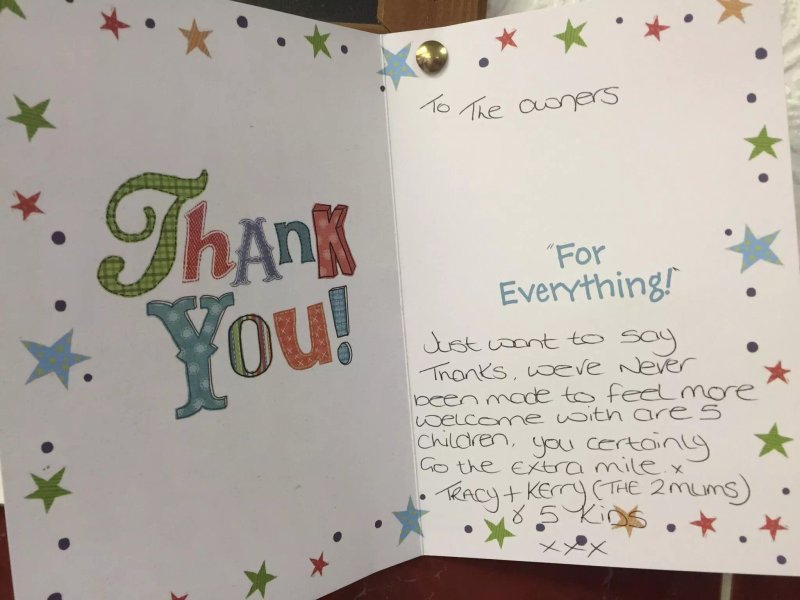 Thank
You!
To The owners
"For
Everything!"
Just want to say
Thanks, we've Never
been made to feel more
welcome with are 5
children, you certainly
Go the Extra mile. x
TRACY + KERRY (THE 2 mums)
& 5 KiDS
xxx